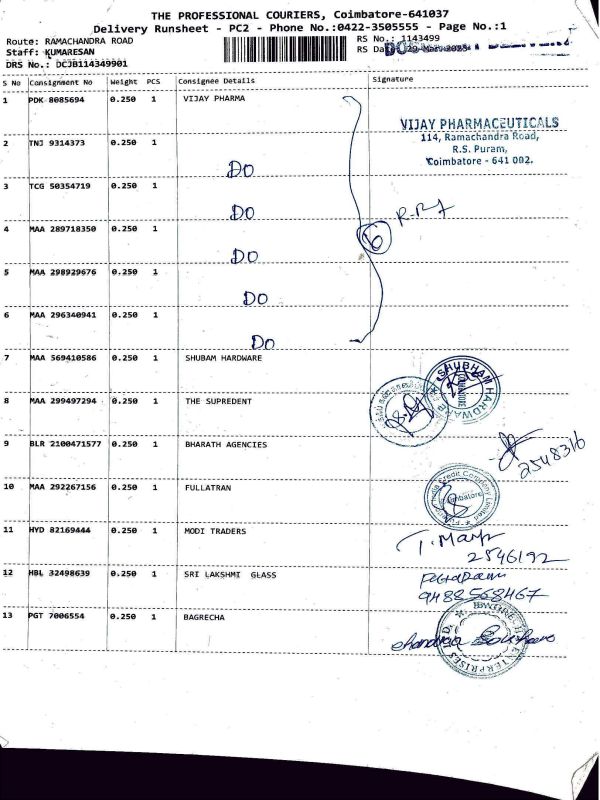 THE PROFESSIONAL COURIERS, Coimbatore-641037
Delivery Runsheet - PC2 - Phone No.:0422-3505555 - Page No.:1
Route: RAMACHANDRA ROAD
RS No.: 1143499
Staff: KUMARESAN
RS Da
DRS No.: DCJB114349901
S No Consignment No Weight PCS Consignee Details Signature
1 PDK 8085694 0.250 1 VIJAY PHARMA
VIJAY PHARMACEUTICALS
114, Ramachandra Road,
R.S. Puram,
Coimbatore - 641 002.
2 TNJ 9314373 0.250 1
DO
3 TCG 50354719 0.250 1
DO
4 MAA 289718350 0.250 1
6
DO
5 MAA 298929676 0.250 1
DO
6 MAA 296340941 0.250 1
DO
7 MAA 569410586 0.250 1 SHUBAM HARDWARE
SHUBHAM HARDWARE
8 MAA 299497294 0.250 1 THE SUPREDENT
9 BLR 2100471577 0.250 1 BHARATH AGENCIES
2548316
10 MAA 292267156 0.250 1 FULLATRAN
11 HYD 82169444 0.250 1 MODI TRADERS
2546192
12 HBL 32498639 0.250 1 SRI LAKSHMI GLASS
9488568467
13 PGT 7006554 0.250 1 BAGRECHA
ENTERPRISES